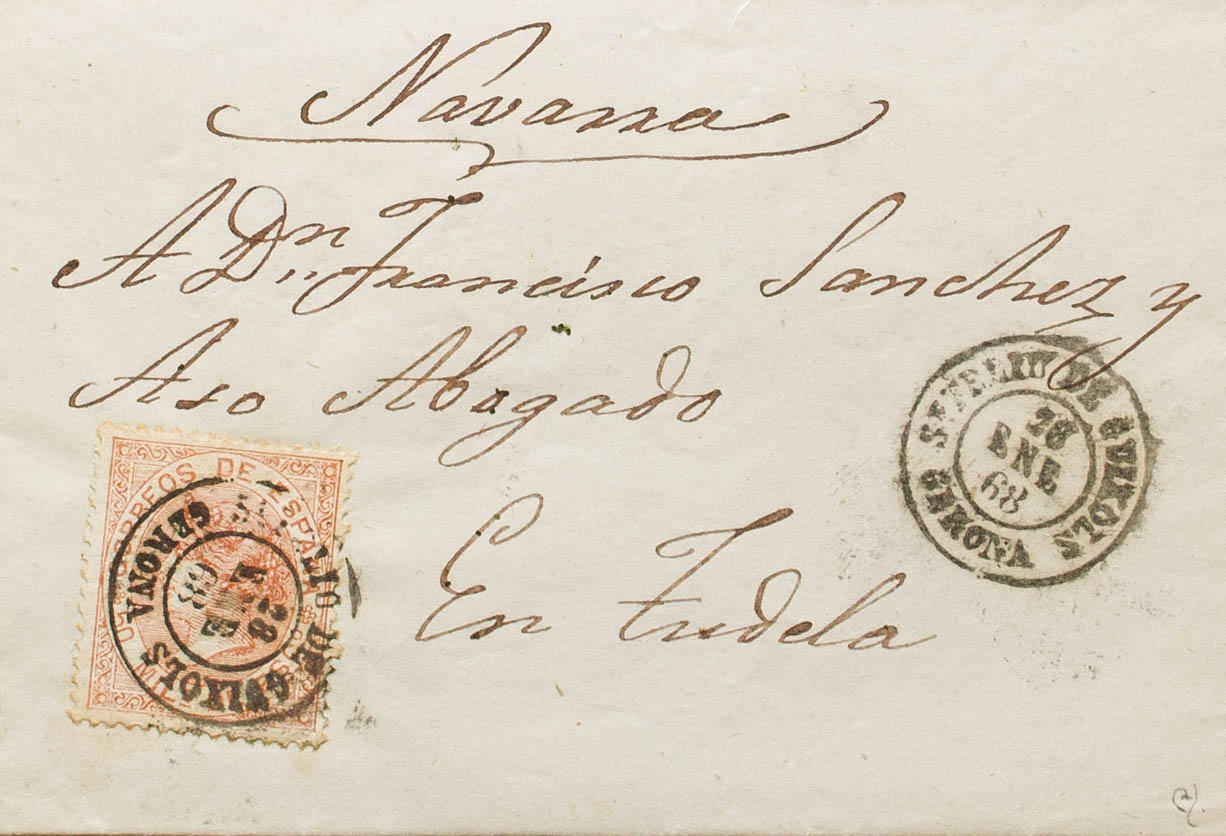 Navarra
A Dn. Francisco Sanchez y
Aso Abogado
En Tudela
S. FELIU DE GUIXOLS
28
ENE
68
GERONA
CORREOS DE ESPAÑA
50 MIL
DE GUIXOLS
28
68
GERONA